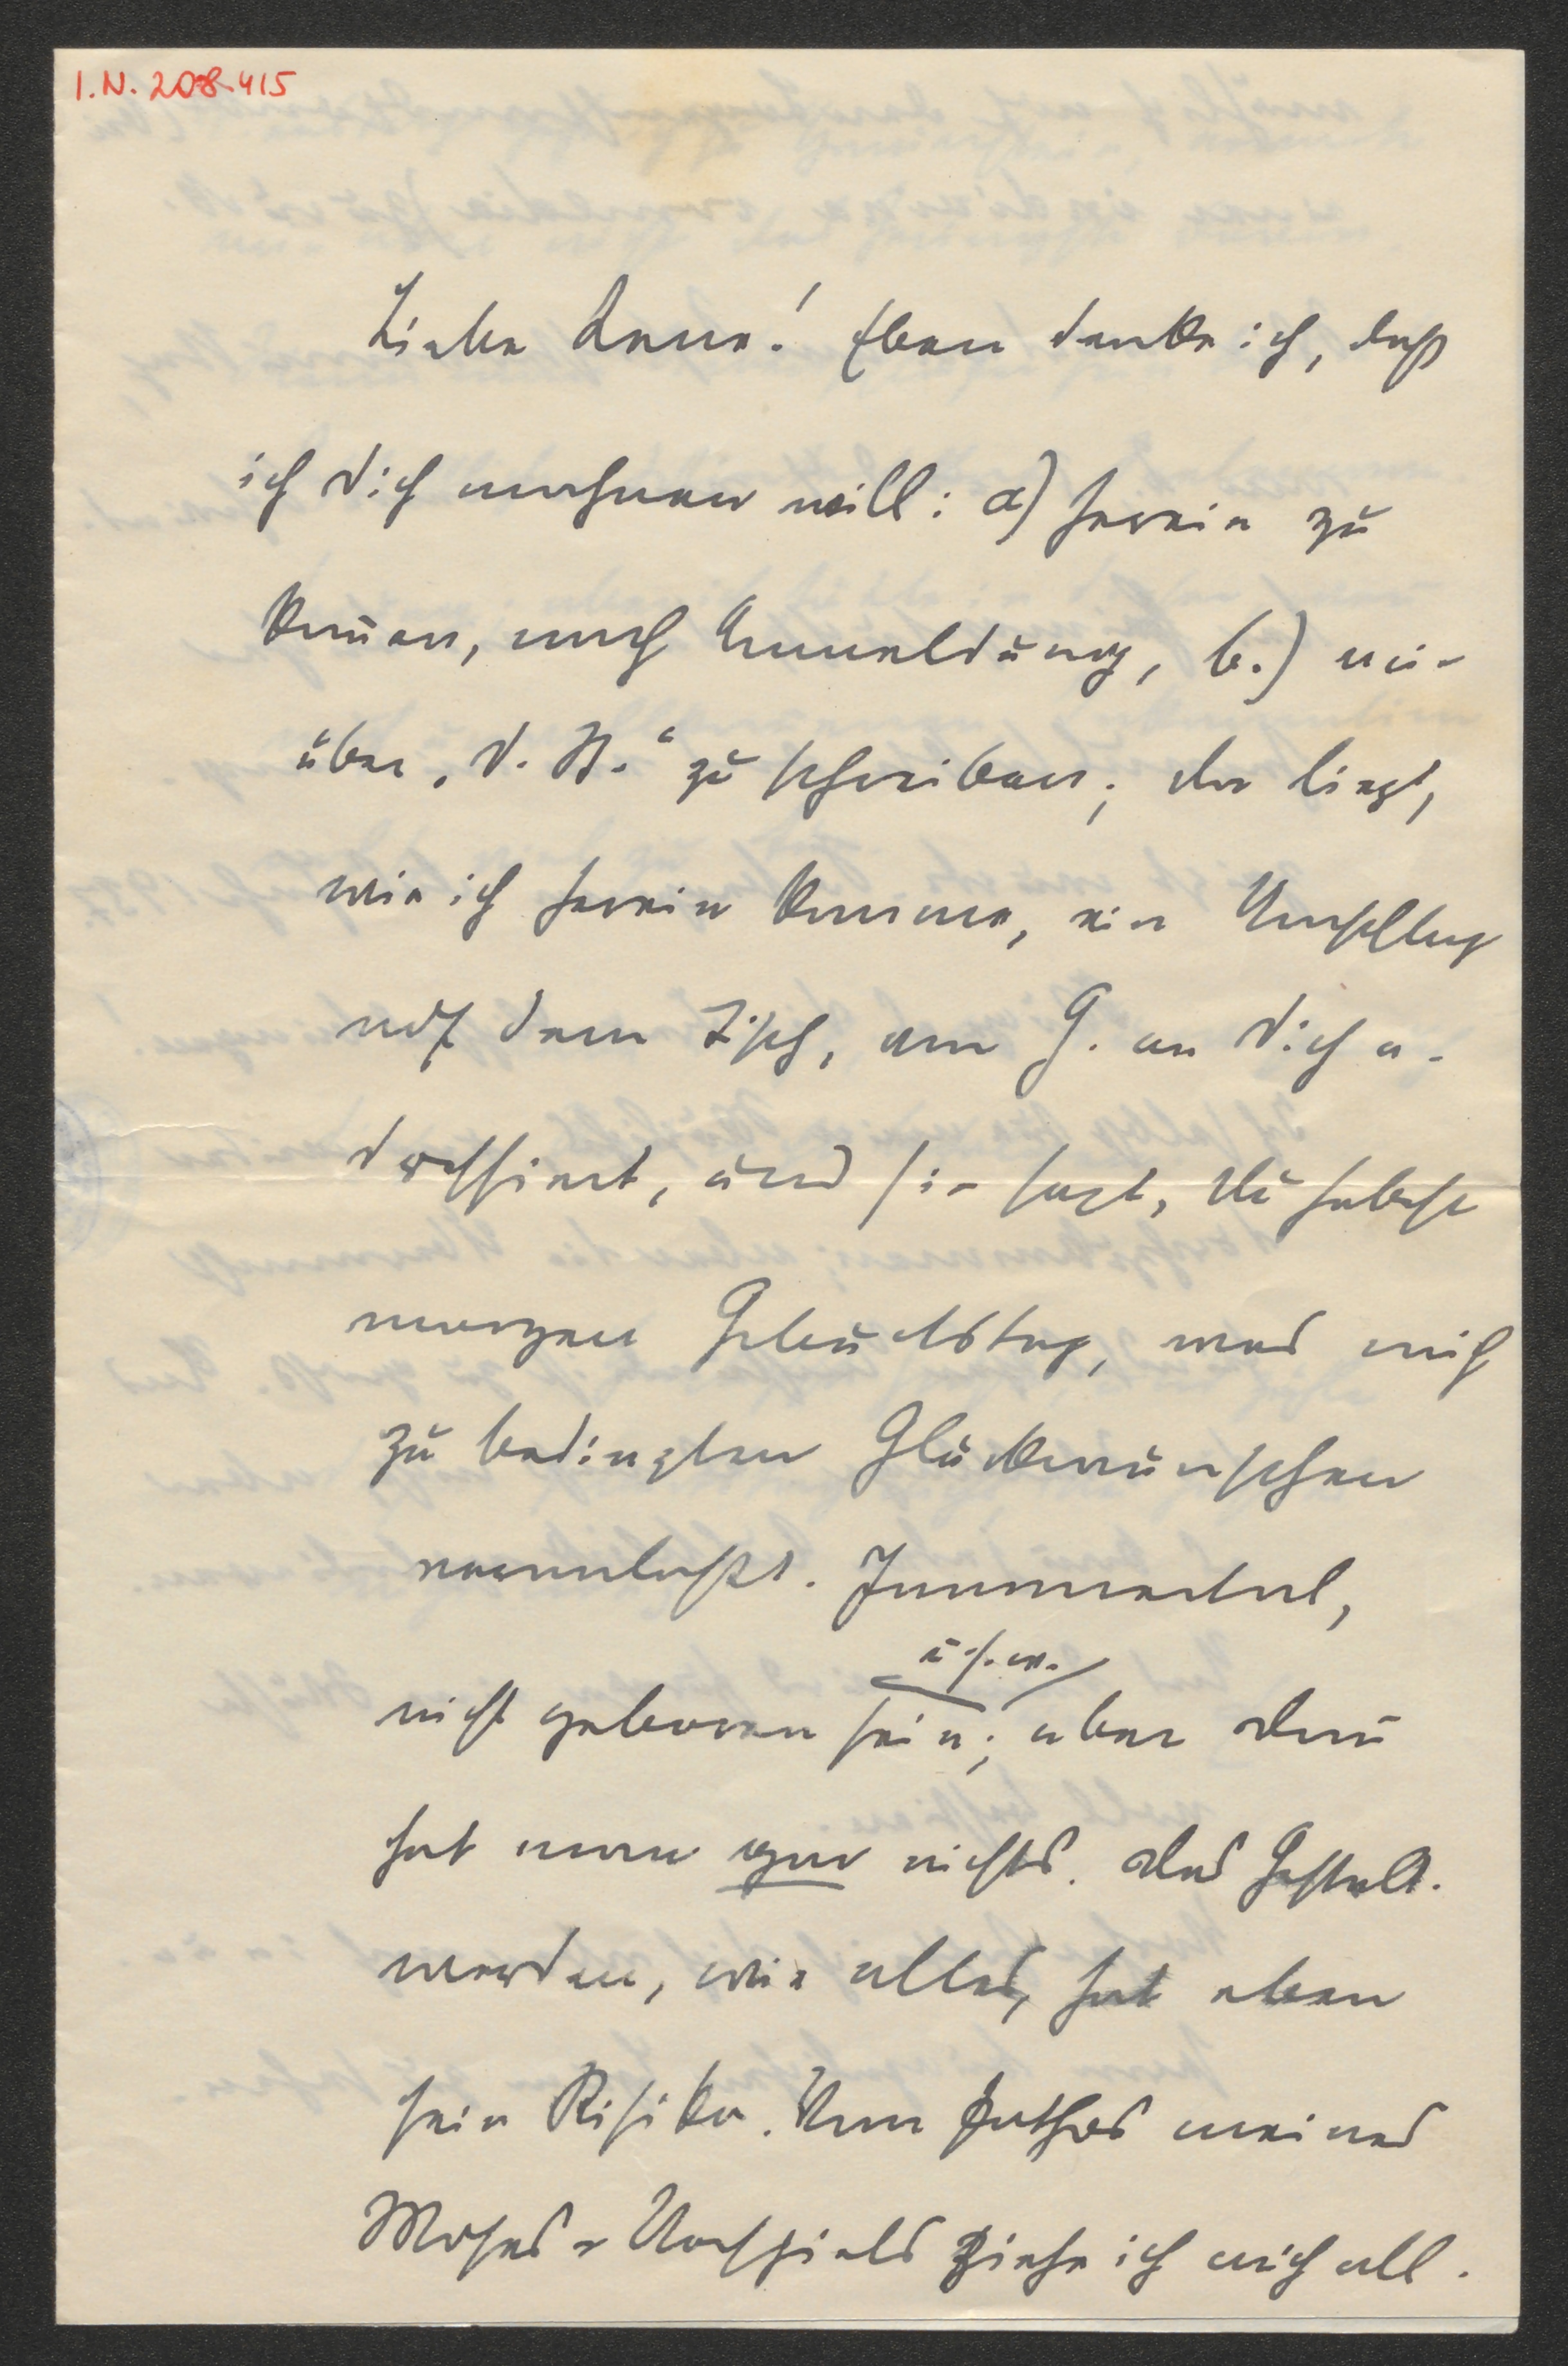 I.N. 208.415
Liebe Anna! Eben denke ich, daß
ich Dich mahnen will: a) herein zu
kommen, nach Anmeldung, b.) mir
über „D. B.“ zu schreiben; da liegt,
wie ich herein komme, ein Umschlag
auf dem Tisch, von G. an Dich a-
dressiert, und sie sagt, Du habest
morgen Geburtstag, was mich
zu bedingten Glückwünschen
veranlaßt. Immerhin,
nicht geboren sein; aber dann
u.s.w.
hat man gar nichts. Das Gestalt-
werden, wie alles, hat eben
sein Risiko. Vom Pathos meines
Moses-Vorspiels ziehe ich mich all-